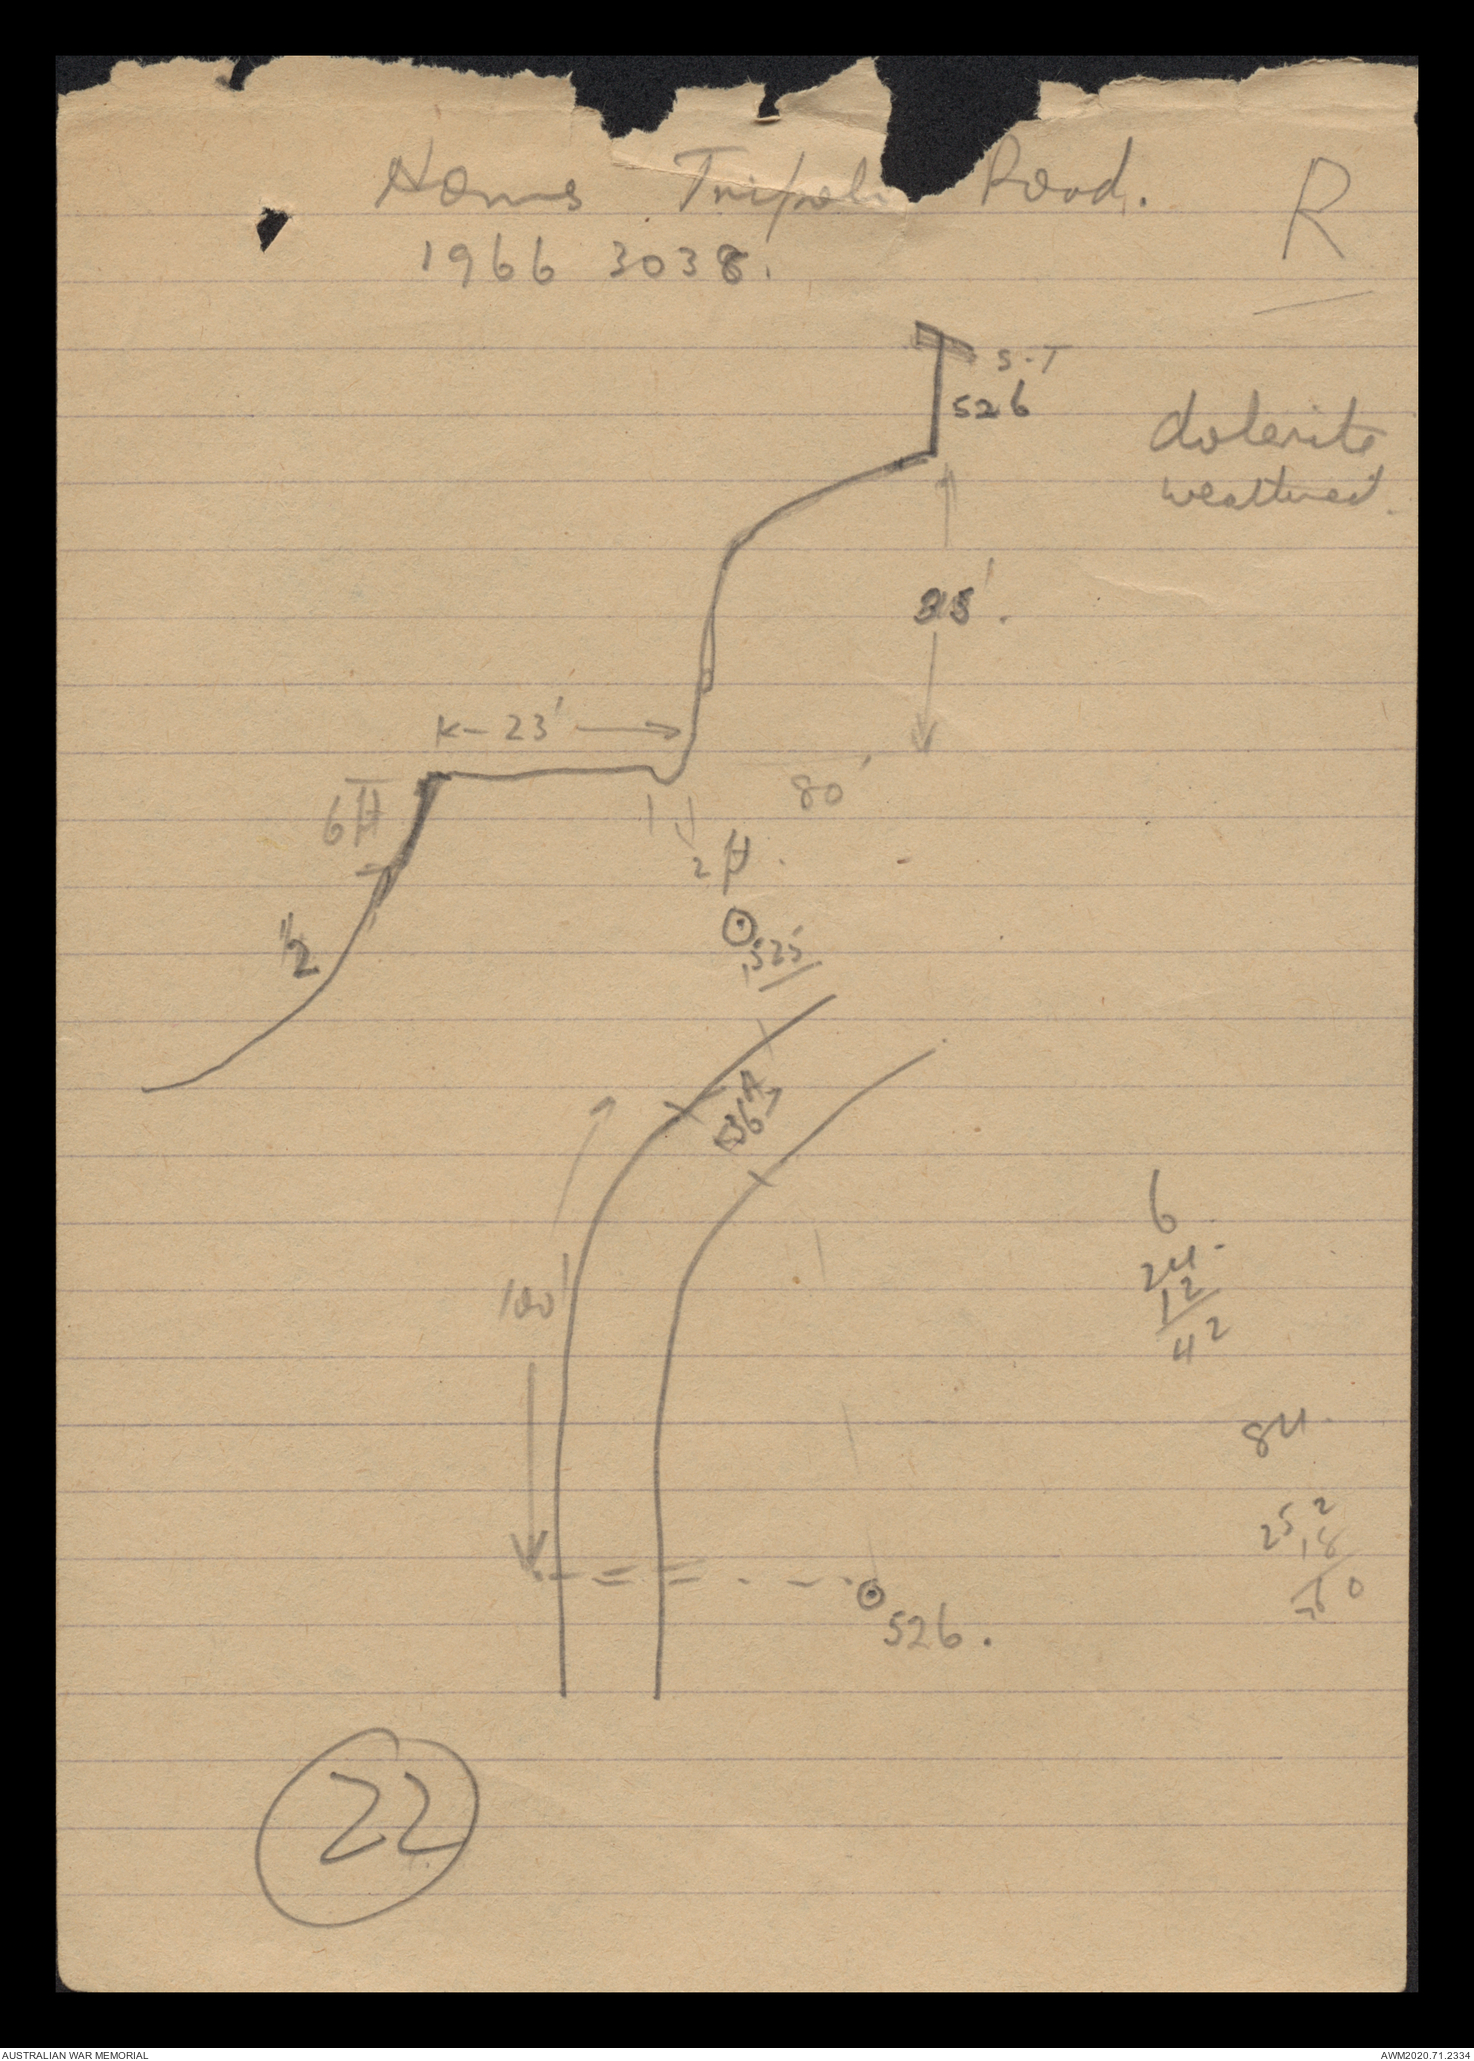 Homs Tripoli Road.
R
1966 3038.
S-T
526
dolerite
weathered.
23'
80'
6 ft
2 ft
1/2
525
36 ft
100'
6
24
12
42
84
252
18
526.
22
AUSTRALIAN WAR MEMORIAL
AWM2020.71.2334